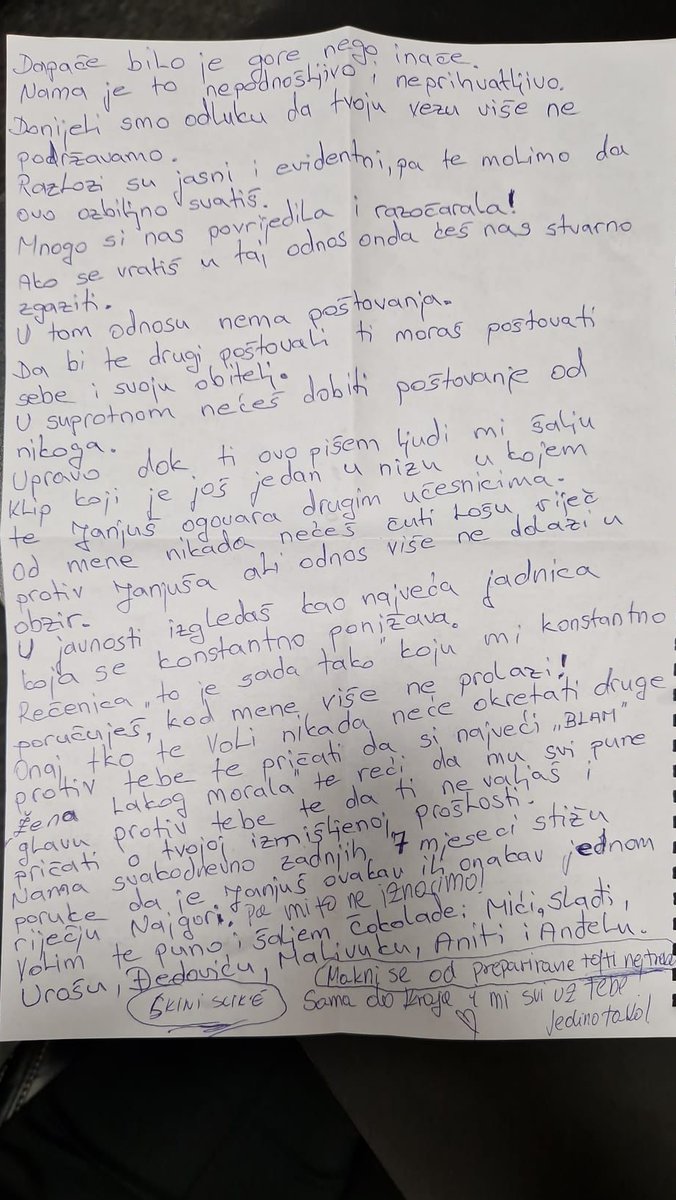 Dapače bilo je gore nego inače.
Nama je to nepodnošljivo i neprihvatljivo.
Donijeli smo odluku da tvoju vezu više ne
podržavamo.
Razlozi su jasni i evidentni, pa te molimo da
ovo ozbiljno svatiš.
Mnogo si nas povrijedila i razočarala!
Ako se vratiš u taj odnos onda ćeš nas stvarno
zgaziti.
U tom odnosu nema poštovanja.
Da bi te drugi poštovali ti moraš poštovati
sebe i svoju obitelj.
U suprotnom nećeš dobiti poštovanje od
nikoga.
Upravo dok ti ovo pišem ljudi mi šalju
klip koji je još jedan u nizu u kojem
te Janjuš ogovara drugim učesnicima.
Od mene nikada nećeš čuti lošu riječ
protiv Janjuša ali odnos više ne dolazi u
obzir.
U javnosti izgledaš kao najveća jadnica
koja se konstantno ponižava.
Rečenica „to je sada tako" koju mi konstantno
poručuješ, kod mene više ne prolazi!
Onaj tko te voli nikada neće okretati druge
protiv tebe te pričati da si najveći „BLAM"
„žena lakog morala" te reći da mu svi pune
glavu protiv tebe te da ti ne valjaš i
pričati o tvojoj izmišljenoj prošlosti.
Nama svakodnevno zadnjih 7 mjeseci stižu
poruke da je Janjuš ovakav ili onakav jednom
riječju Najgori. pa mi to ne iznosimo!
Volim te puno i šaljem čokolade: Mići, Slađi,
Urošu, Dedoviću, Malivuku, Aniti i Anđelu.
Makni se od preparirane
SKINI SLIKE
Sama do kraja i mi svi uz tebe
jedino tako!